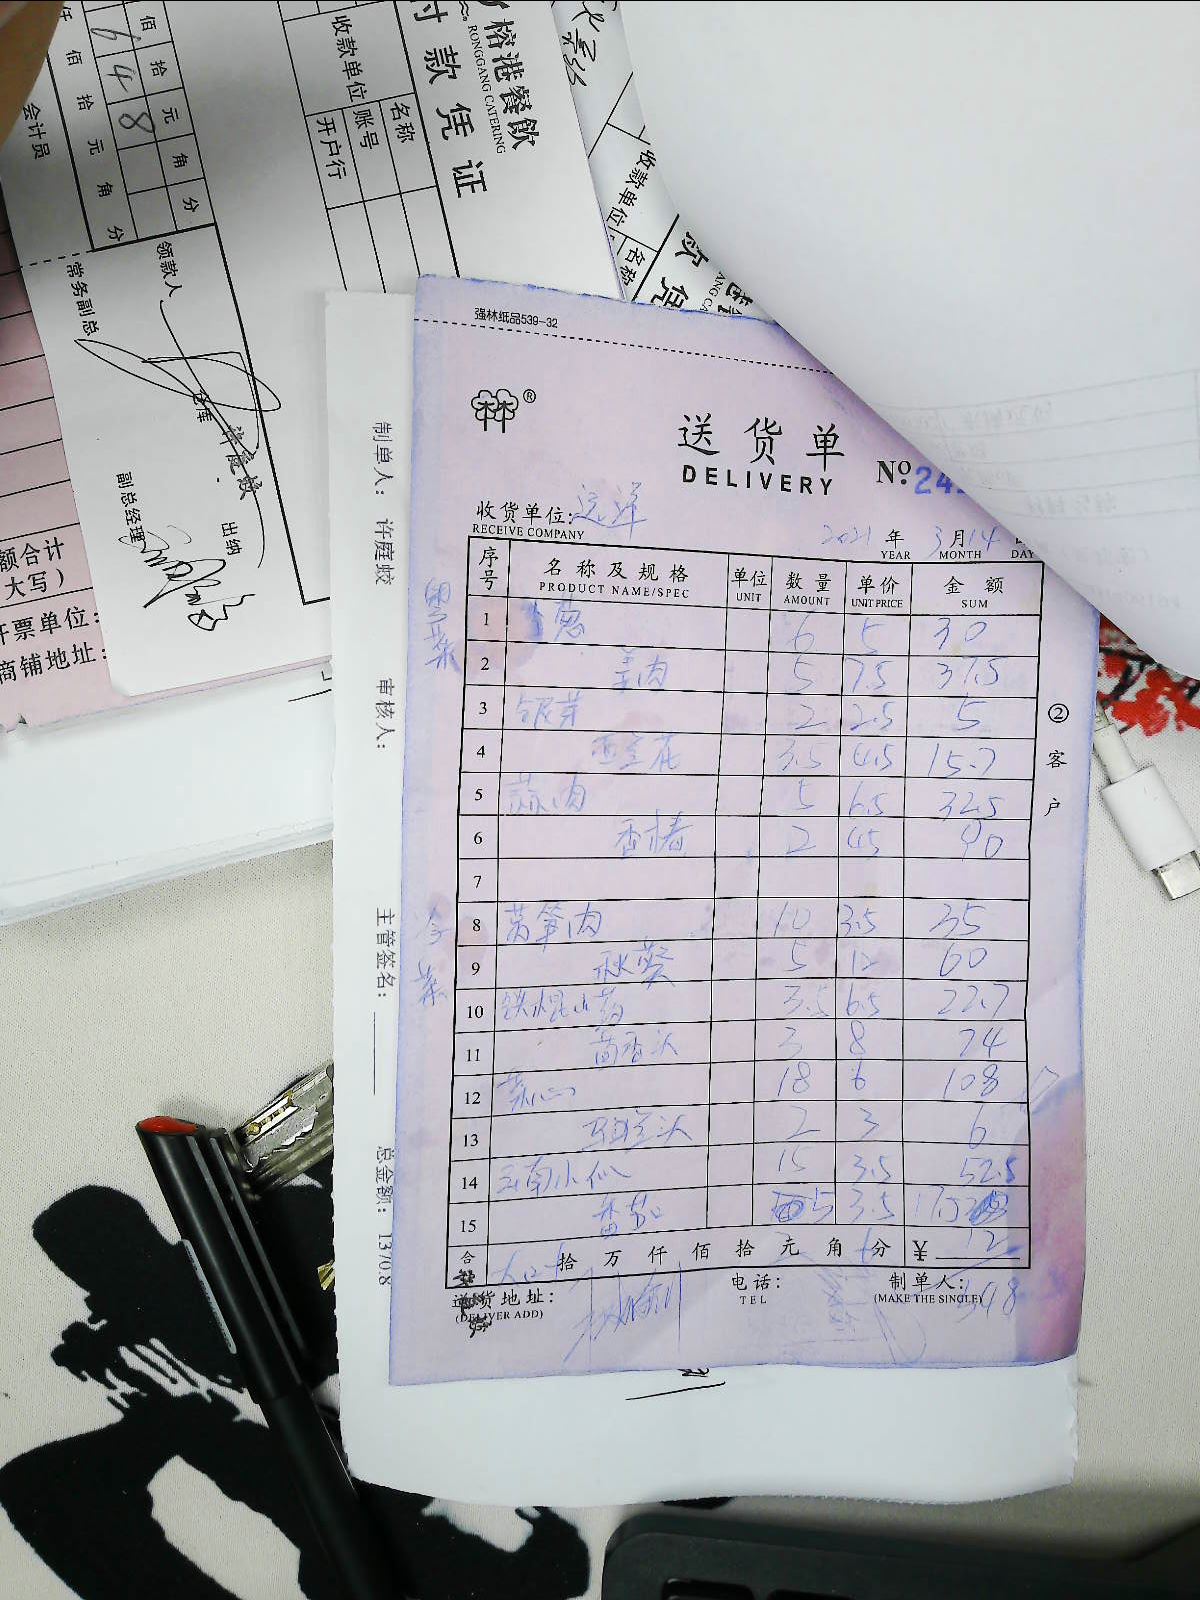 榕港餐飲
RONGGANG CATERING
付款凭证
收款单位
名称
账号
开户行
佰 拾 元 角 分
6 4 8
仟 佰 拾 元 角 分
会计员
领款人
常务副总
仓库 许庭蛟
出纳
副总经理
额合计
大写）
开票单位：
商铺地址：
收款单位
名称
制单人： 许庭蛟
审核人：
主管签名：
总金额： 1370.8
强林纸品539-32
送货单
DELIVERY
No. 24
收货单位: 远洋
RECEIVE COMPANY
2021 年 3 月 14
YEAR MONTH DAY
序号 名称及规格 单位 数量 单价 金额
PRODUCT NAME/SPEC UNIT AMOUNT UNIT PRICE SUM
1 葱 6 5 30
2 羊肉 5 7.5 37.5
3 银芽 2 2.5 5
4 西兰花 3.5 4.5 15.7
5 蒜肉 5 6.5 32.5
6 香椿 2 45 90
7
8 莴笋肉 10 3.5 35
9 秋葵 5 12 60
10 铁棍山药 3.5 6.5 22.7
11 茴香头 3 8 24
12 菜心 18 6 108
13 马兰头 2 3 6
14 云南小瓜 15 3.5 52.5
15 番茄 5 3.5 17.5
合 拾 万 仟 佰 拾 元 角 分 ¥
送货地址:
(DELIVER ADD)
电话:
TEL
制单人:
(MAKE THE SINGLE)
②客户